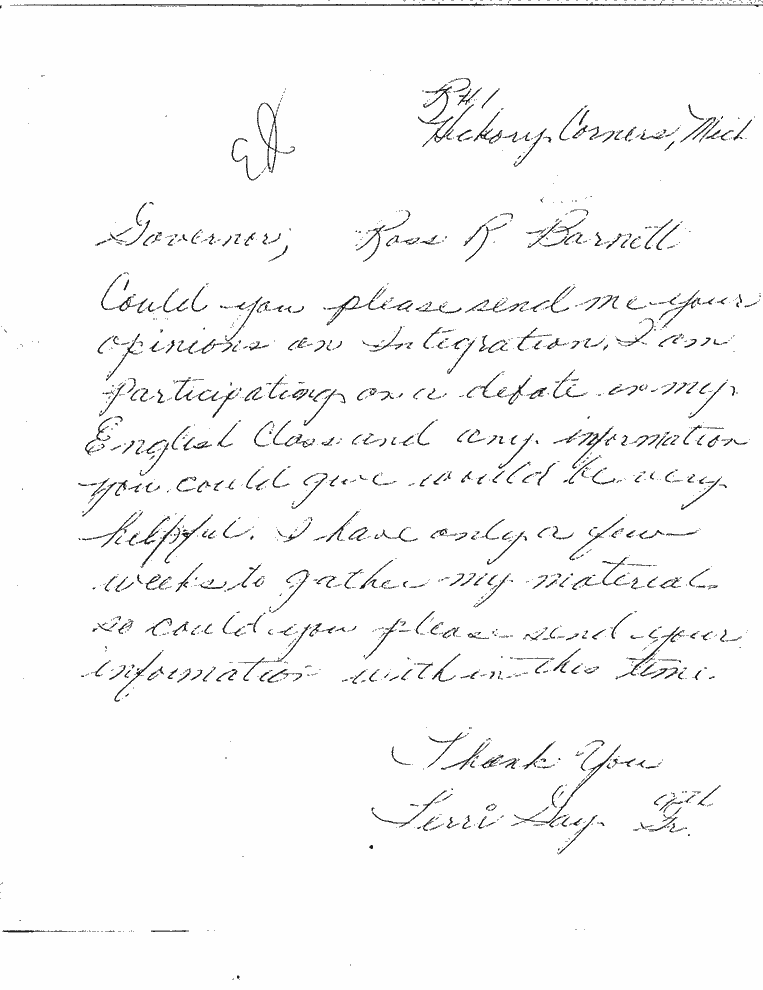 R#1
Hickory Corners, Mich
Governor, Ross R. Barnett
Could you please send me your
opinions on Integration. I am
participating on a debate in my
English Class and any information
you could give would be very
helpful. I have only a few
weeks to gather my material
so could you please send your
information within this time.
Thank You
Terri Gay Gr.